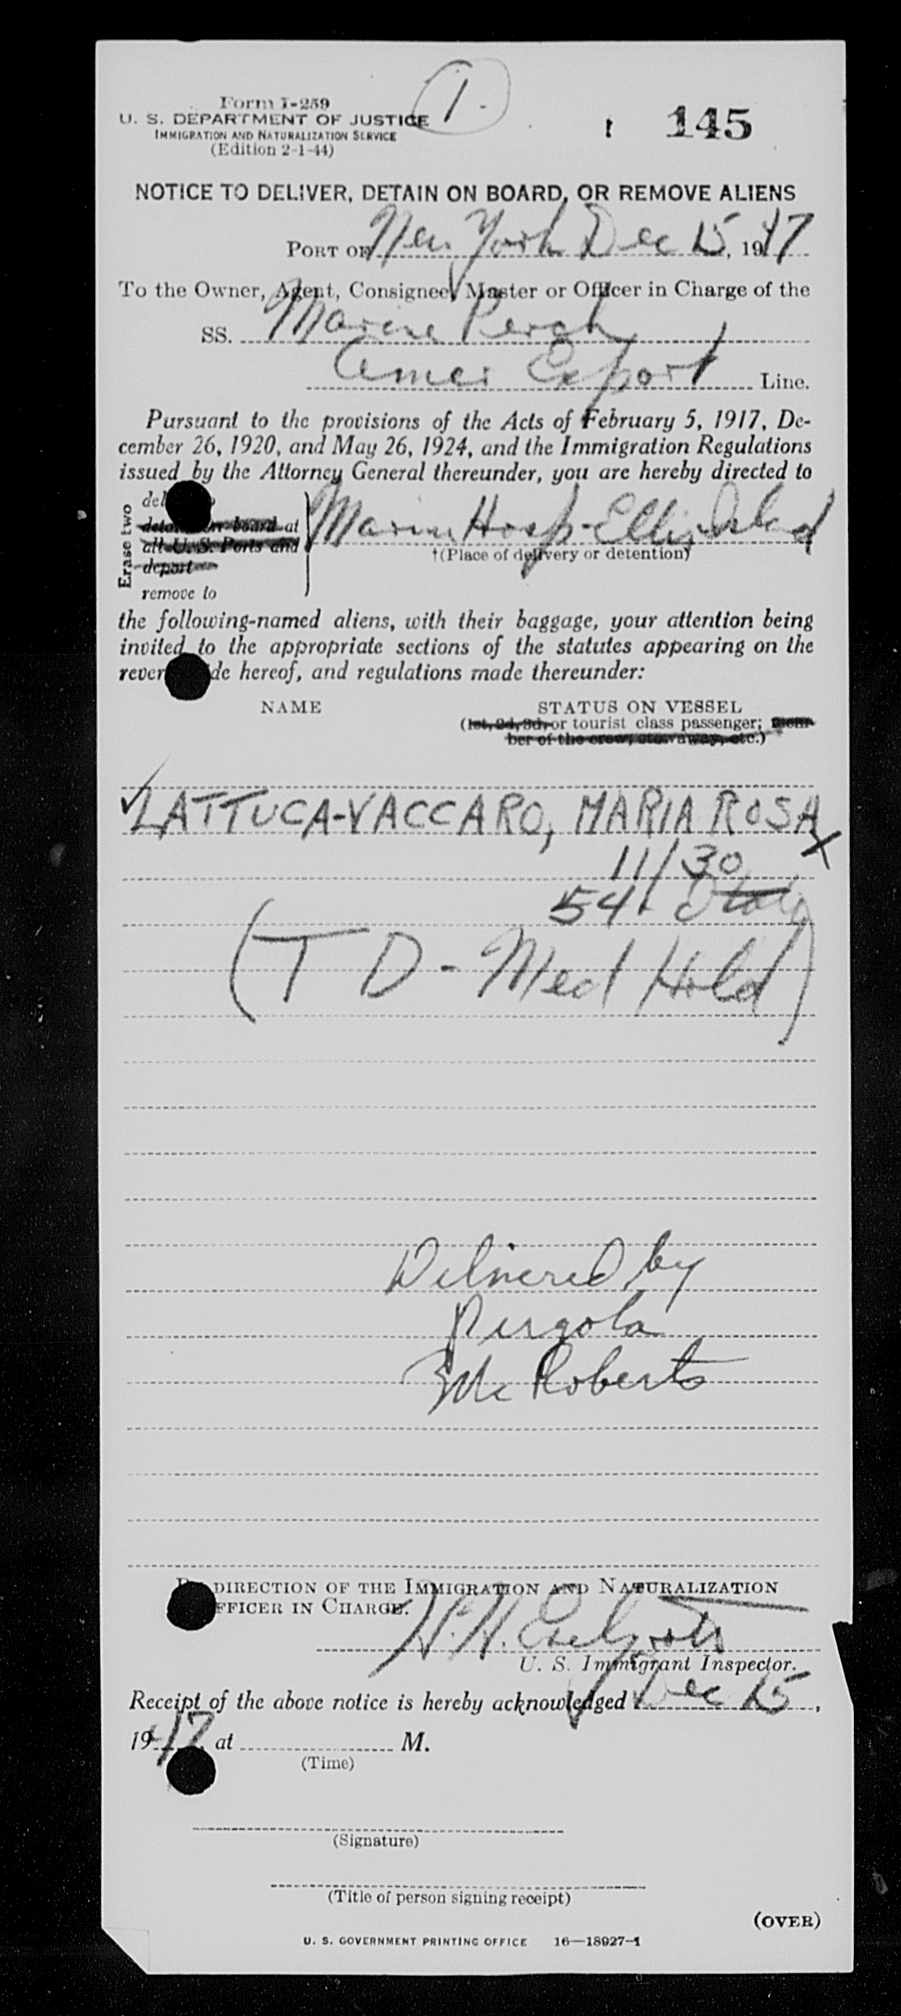 Form I-259
1.
U. S. DEPARTMENT OF JUSTICE
IMMIGRATION AND NATURALIZATION SERVICE
(Edition 2-1-44)
145
NOTICE TO DELIVER, DETAIN ON BOARD, OR REMOVE ALIENS
PORT OF New York Dec 15, 1947
To the Owner, Agent, Consignee, Master or Officer in Charge of the
SS. Marine Perch
Amer Export Line.
Pursuant to the provisions of the Acts of February 5, 1917, De-
cember 26, 1920, and May 26, 1924, and the Immigration Regulations
issued by the Attorney General thereunder, you are hereby directed to
Erase two
detain on board at
all U. S. Ports and
deport
remove to
Marine Hosp-Ellis Island
†(Place of delivery or detention)
the following-named aliens, with their baggage, your attention being
invited to the appropriate sections of the statutes appearing on the
reverse side hereof, and regulations made thereunder:
NAME STATUS ON VESSEL
(1st, 2d, 3d, or tourist class passenger; mem-
ber of the crew, stowaway, etc.)
LATTUCA-VACCARO, MARIA ROSA X
11/30
54. Italy
(T D - Med Hold)
Delivered by
Pergola
McRoberts
By DIRECTION OF THE IMMIGRATION AND NATURALIZATION
OFFICER IN CHARGE.
H. H.
U. S. Immigrant Inspector.
Receipt of the above notice is hereby acknowledged Dec 15,
1947 at M.
(Time)
(Signature)
(Title of person signing receipt)
(OVER)
U. S. GOVERNMENT PRINTING OFFICE 16—18927-1